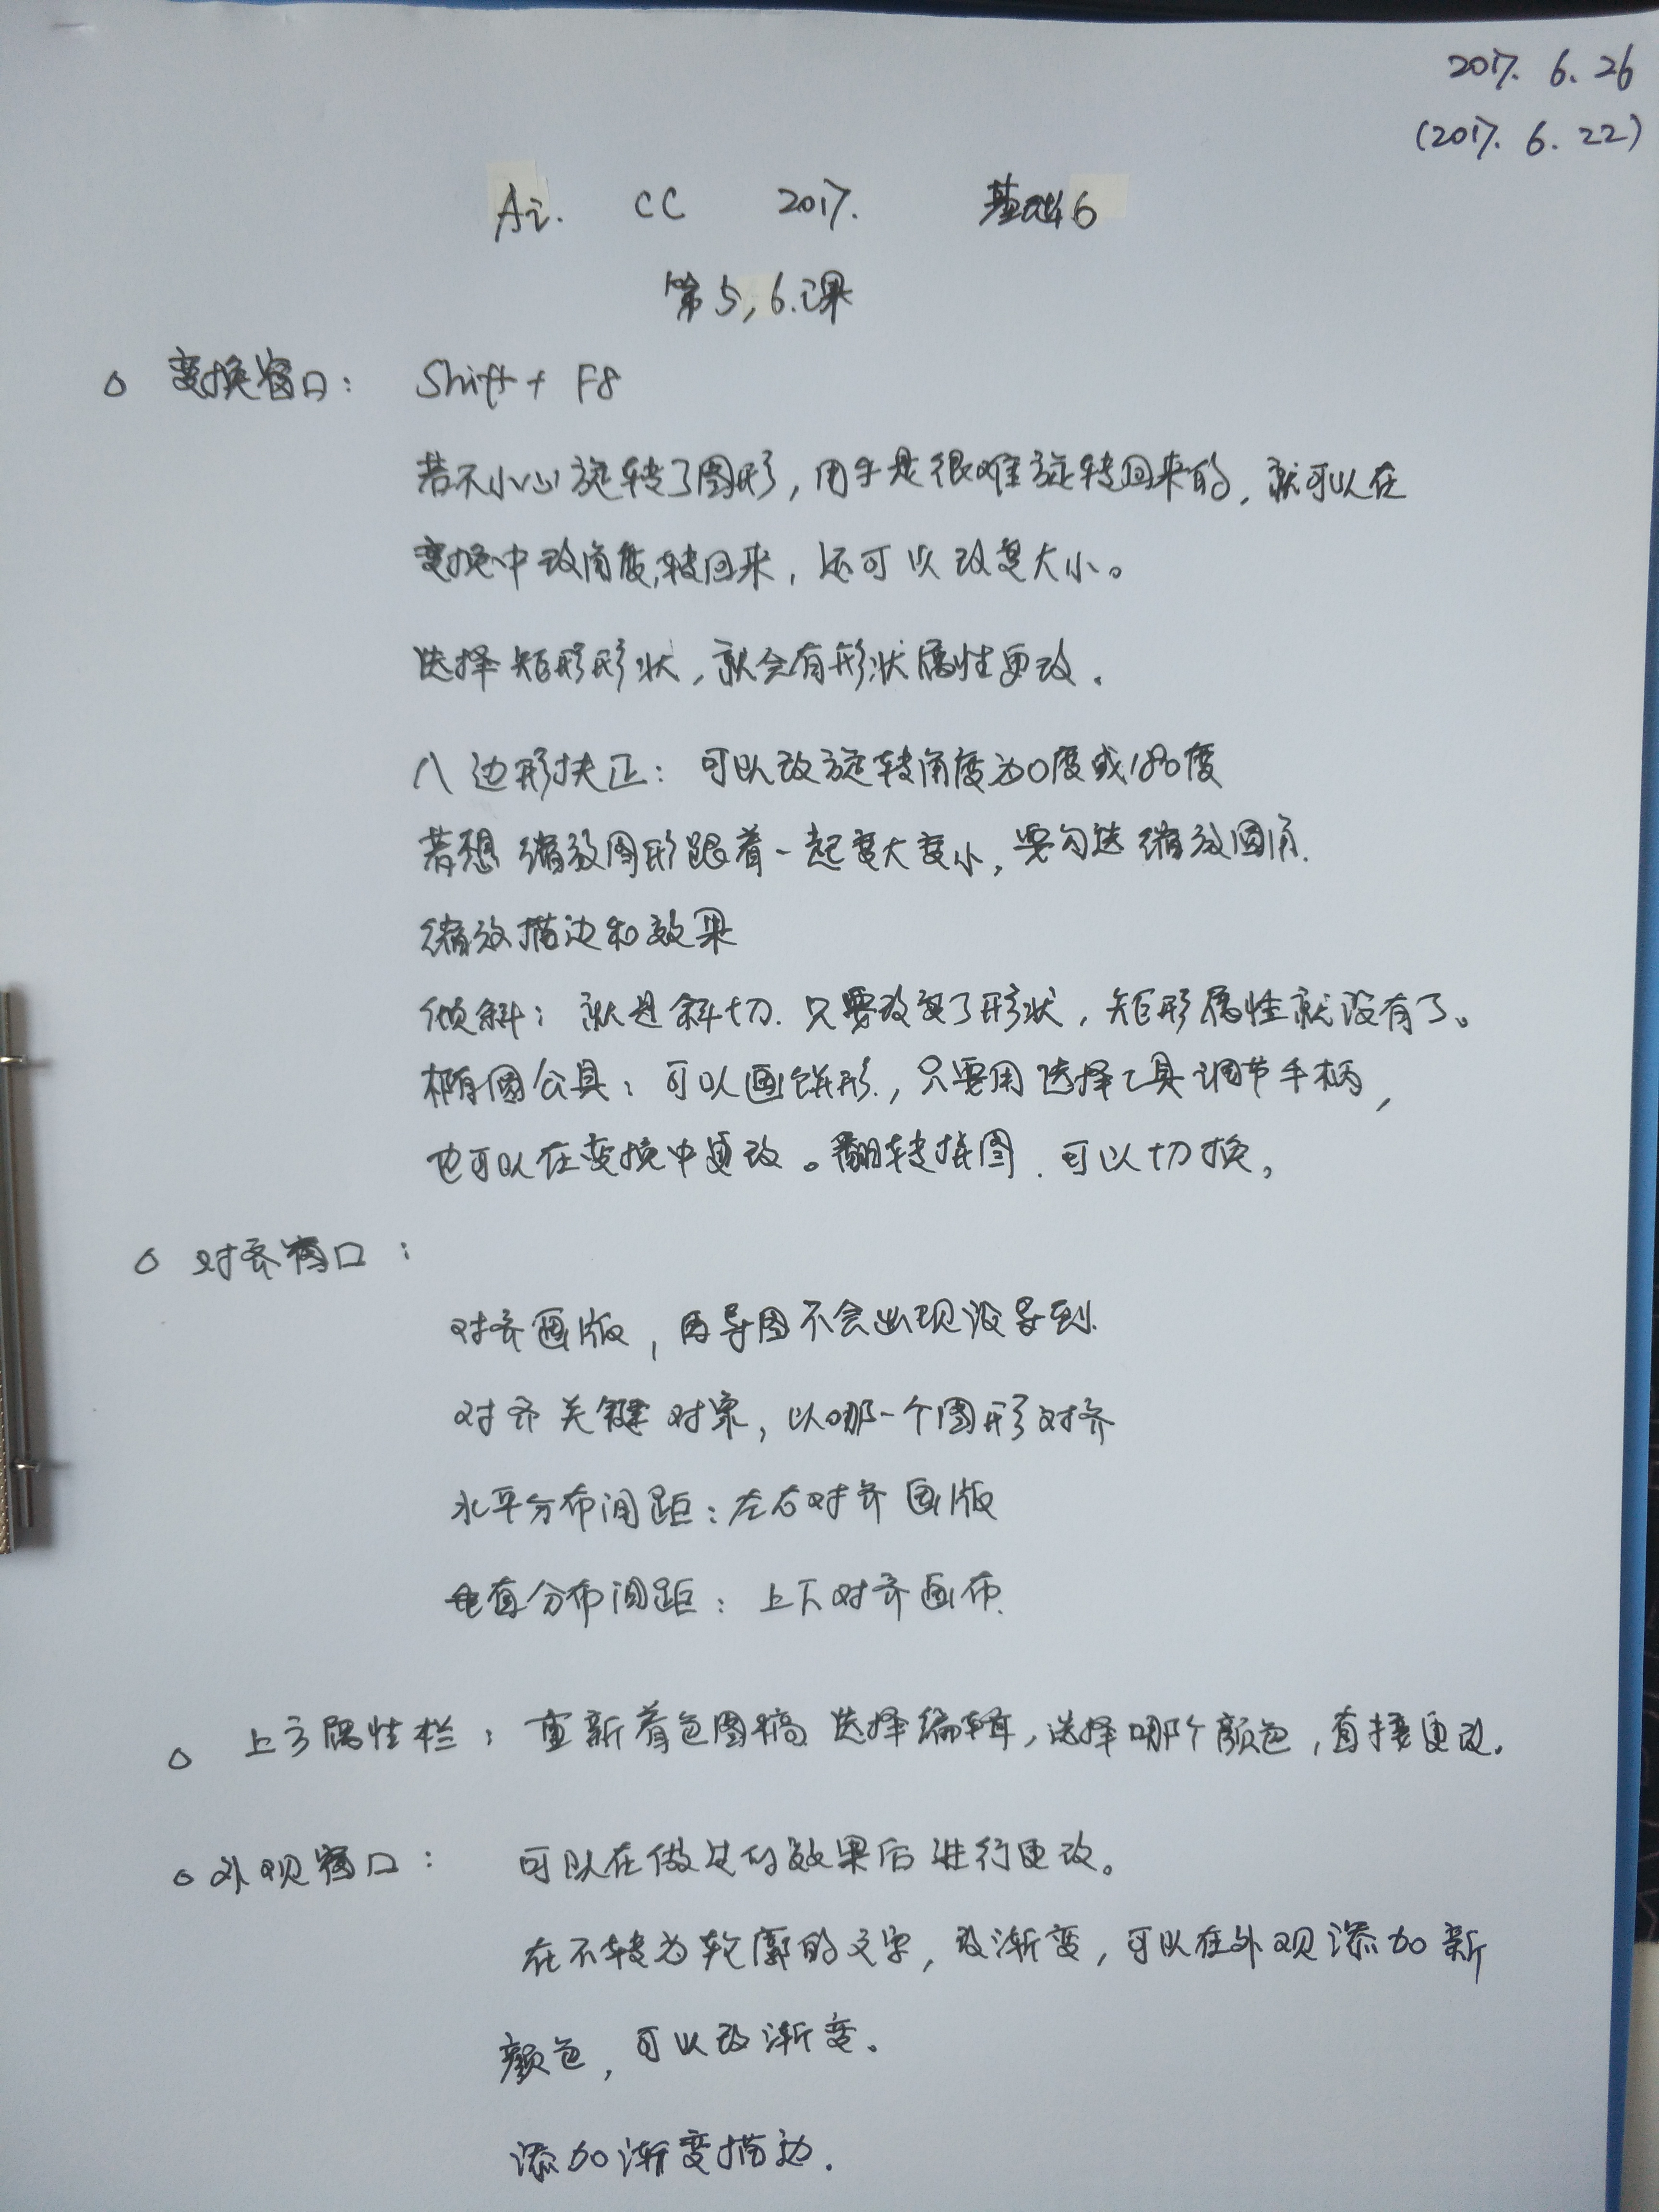 2017. 6. 26
(2017. 6. 22)
Ai. CC 2017. 基础6
第5,6.课
变换窗口: Shift + F8
若不小心旋转了图形,用手是很难旋转回来的,就可以在
变换中改角度,转回来,还可以改变大小。
选择矩形形状,就会有形状属性更改.
八边形扶正: 可以改旋转角度为0度或180度
若想缩放图形跟着一起变大变小,要勾选缩放圆角.
缩放描边和效果
倾斜: 就是斜切.只要改变了形状,矩形属性就没有了。
椭圆工具: 可以画饼形.,只要用选择工具调节手柄,
也可以在变换中更改。翻转拼图.可以切换。
对齐窗口:
对齐画版,再导图不会出现没导到.
对齐关键对象,以哪一个图形对齐
水平分布间距:左右对齐画版
垂直分布间距: 上下对齐画布.
上方属性栏: 重新着色图稿 选择编辑,选择哪个颜色,直接更改。
外观窗口: 可以在做过的效果后进行更改。
在不转为轮廓的文字,改渐变,可以在外观添加新
颜色,可以改渐变。
添加渐变描边.